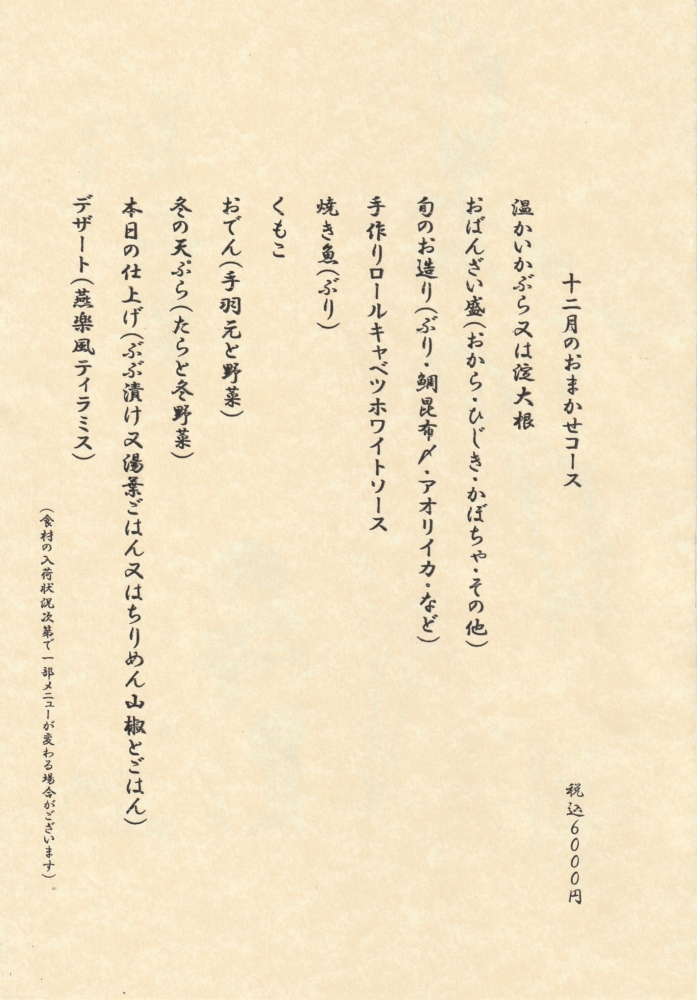 十二月のおまかせコース
税込6000円
温かいかぶら又は淀大根
おばんざい盛(おから・ひじき・かぼちゃ・その他)
旬のお造り(ぶり・鯛昆布〆・アオリイカ・など)
手作りロールキャベツホワイトソース
焼き魚(ぶり)
くもこ
おでん(手羽元と野菜)
冬の天ぷら(たらと冬野菜)
本日の仕上げ(ぶぶ漬け又湯葉ごはん又はちりめん山椒とごはん)
デザート(燕楽風ティラミス)
(食材の入荷状況次第で一部メニューが変わる場合がございます)。